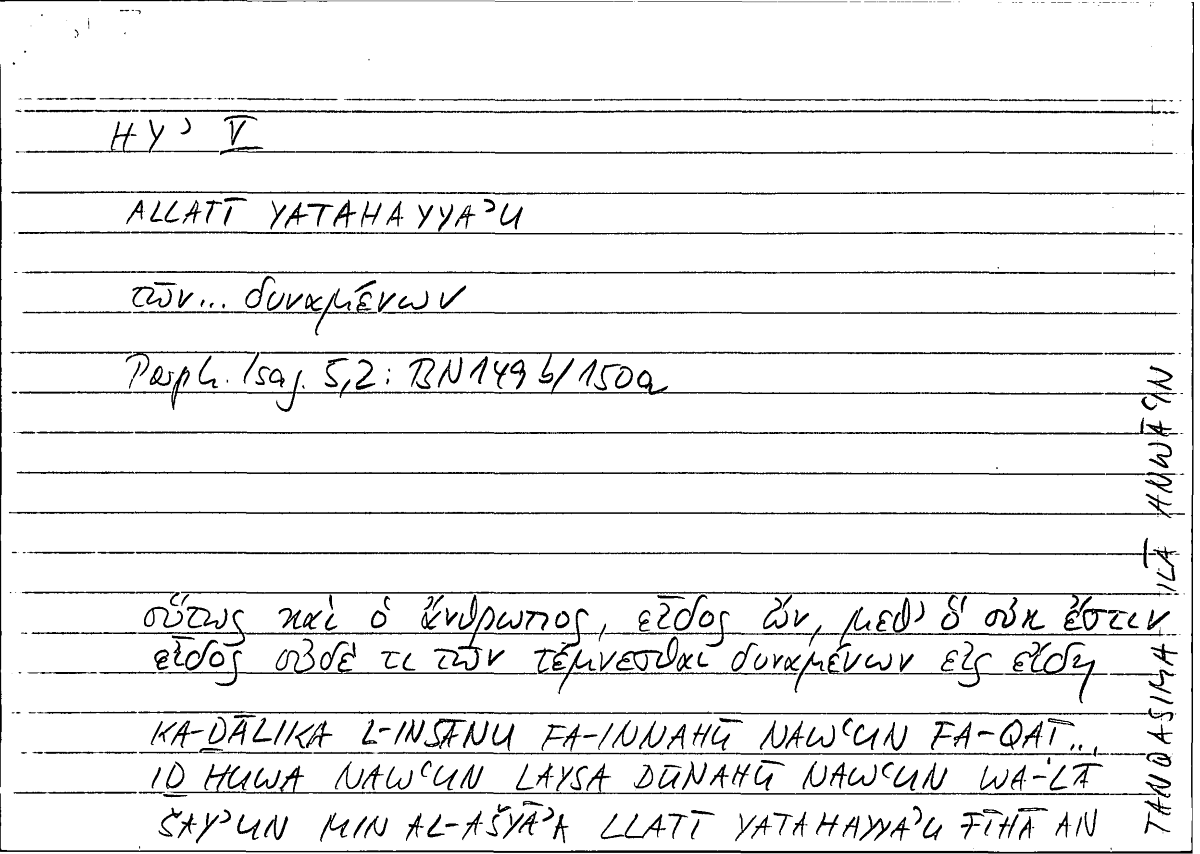 HYʾ V
ALLATĪ YATAHAYYAʾU
τῶν... δυναμένων
Porph. Isag. 5,2: BN 149b/150a
οὕτως καὶ ὁ ἄνθρωπος, εἶδος ὤν, μεθ' ὃ οὐκ ἔστιν
εἶδος οὐδέ τι τῶν τέμνεσθαι δυναμένων εἰς εἴδη
KA-ḎĀLIKA L-INSĀNU FA-INNAHŪ NAWʿUN FA-QAṬ...
IḎ HUWA NAWʿUN LAYSA DŪNAHŪ NAWʿUN WA-LĀ
ŠAYʾUN MIN AL-AŠYĀʾA LLATĪ YATAHAYYAʾU FĪHĀ AN
TANQASIMA ILĀ ANWĀʿIN